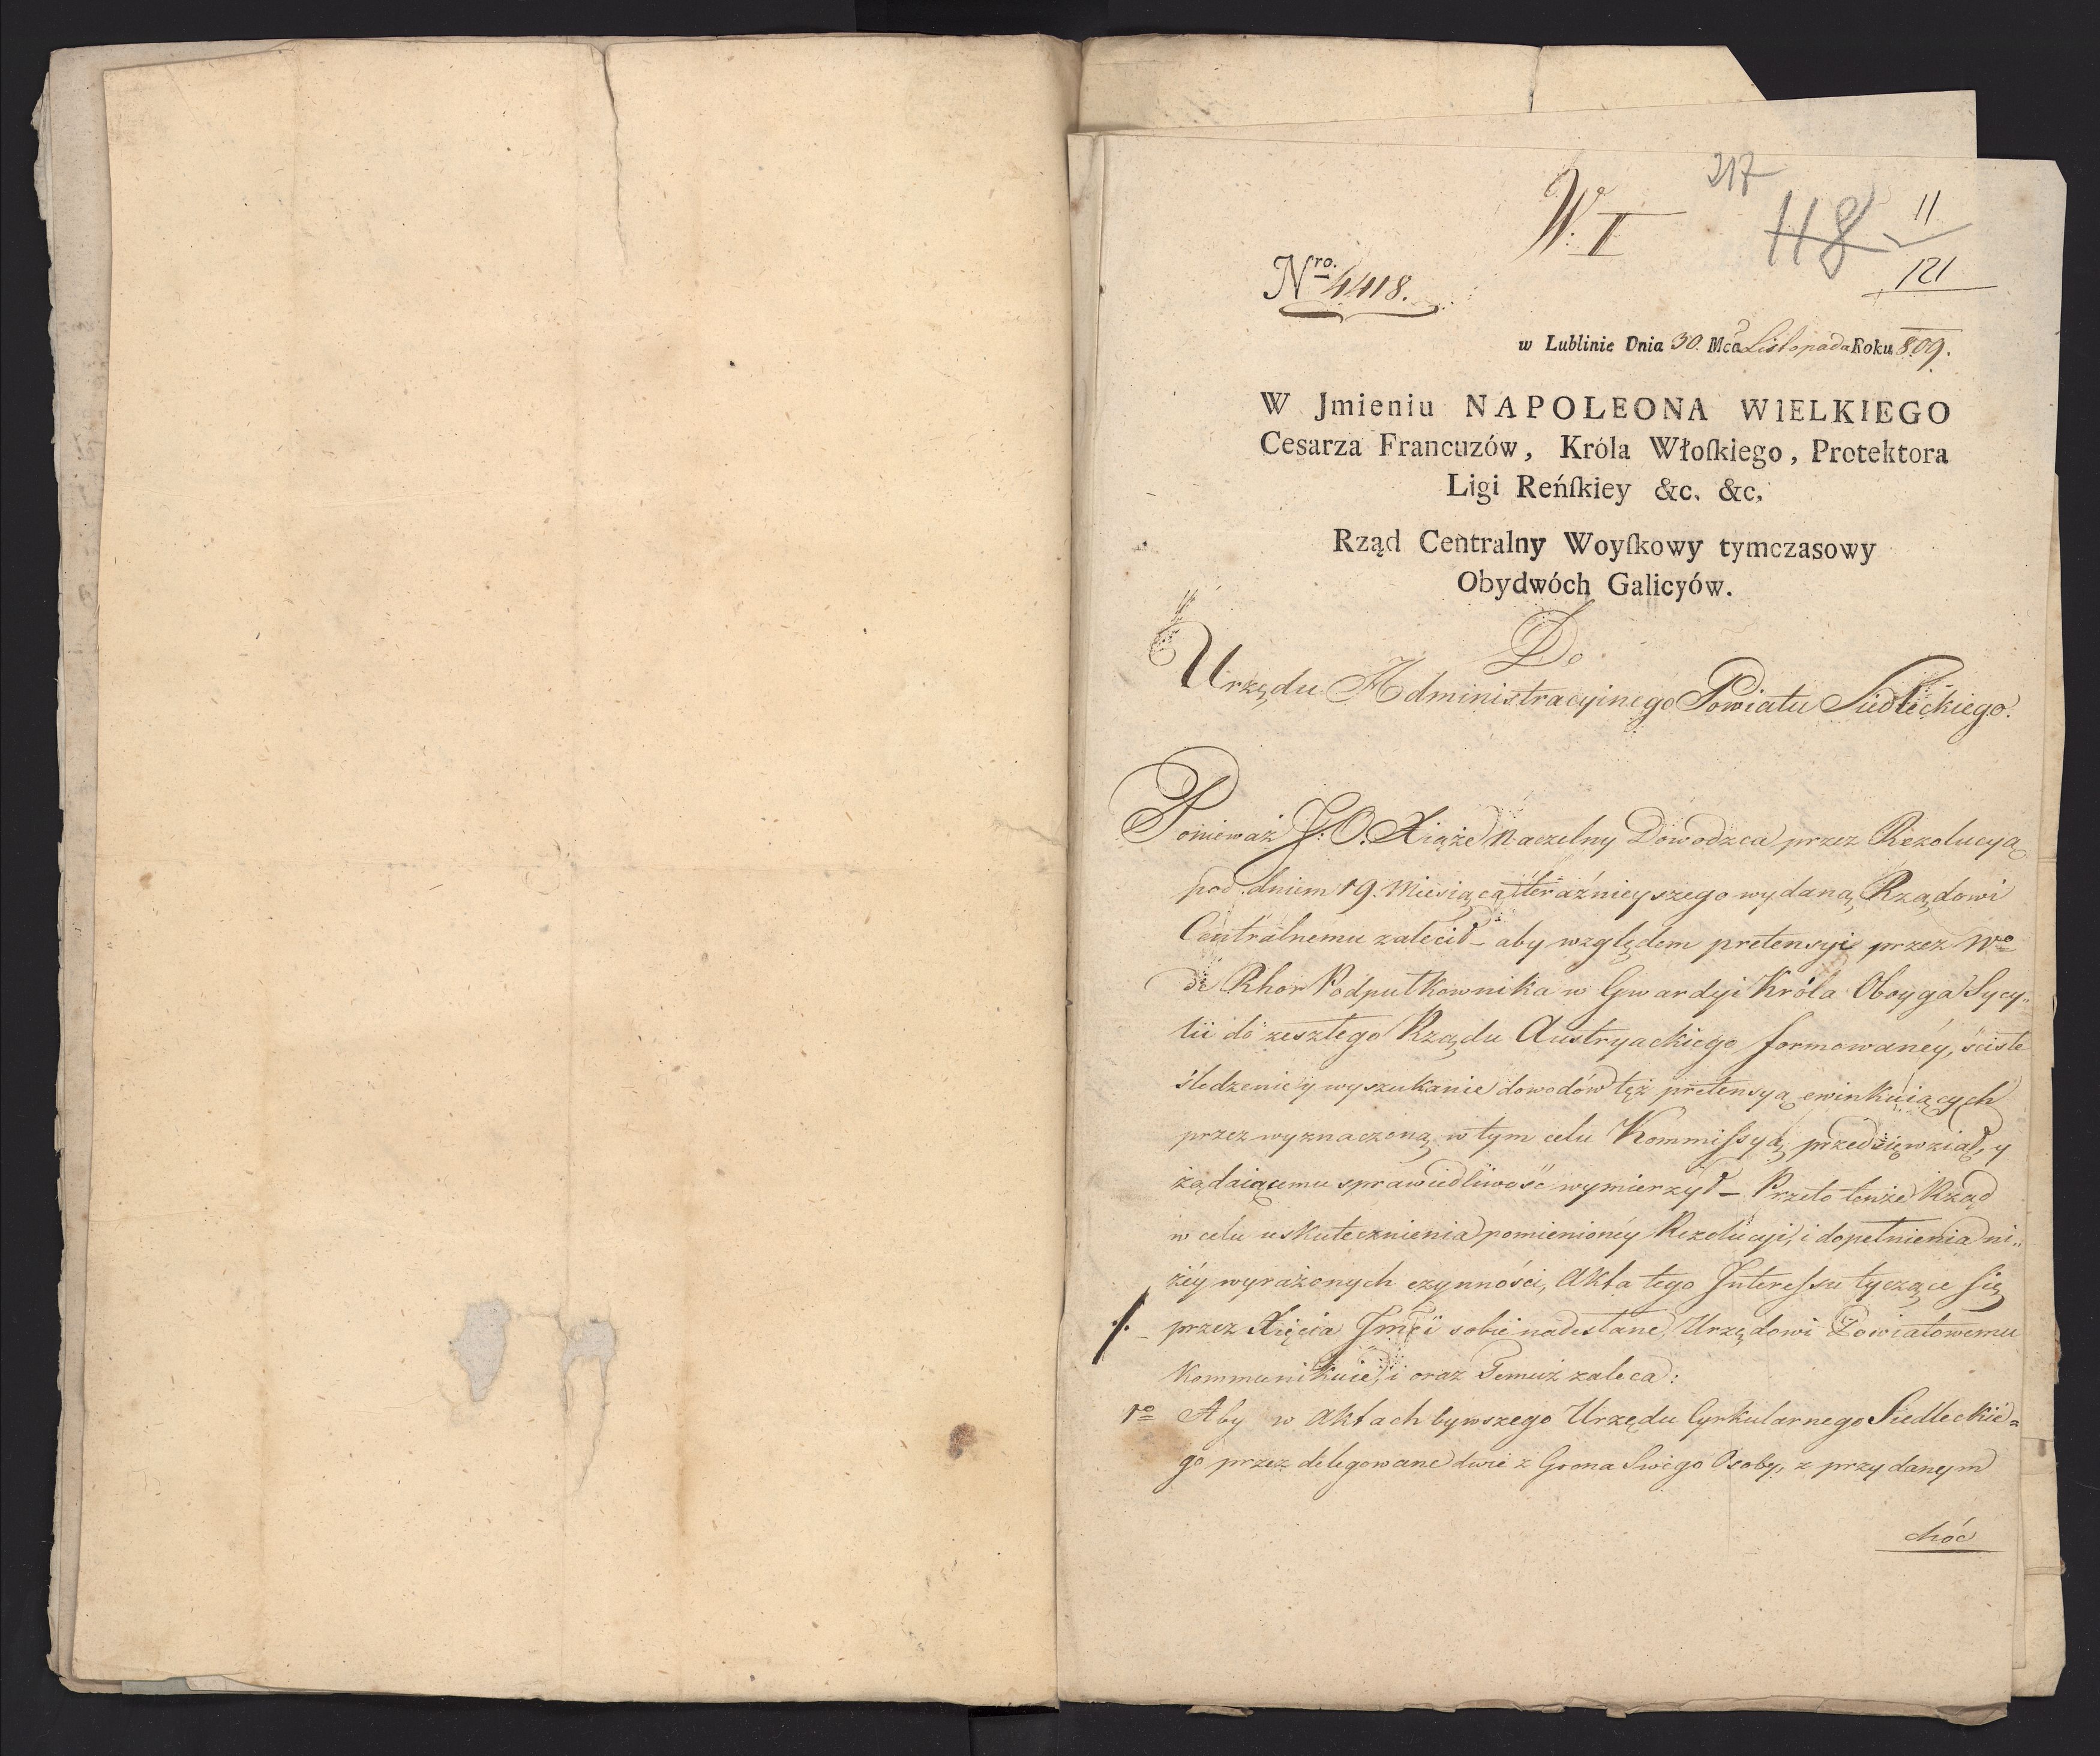 217
W. I 118 11
121
Nro. 4418.
w Lublinie Dnia 30. Mca Listopada Roku 809.
W Jmieniu NAPOLEONA WIELKIEGO
Cesarza Francuzów, Króla Włoſkiego, Protektora
Ligi Reńſkiey &c. &c.
Rząd Centralny Woyſkowy tymczasowy
Obydwóch Galicyów.
Do
Urzędu Administracyinego Powiatu Siedleckiego.
Ponieważ J. O. Xiąże Naczelny Dowodzca przez Rezolucyą
pod dniem 19. Miesiąca teraźnieyszego wydaną Rządowi
Centralnemu zalecił – aby względem pretensyi przez Wo
de Rhor Podpułkownika w Gwardyi Króla Oboyga Sycy„
lii do zeszłego Rządu Austryackiego formowaney, ściste
śledzenie y wyszukanie dowodów tęż pretensyą ewinkuiących
przez wyznaczoną w tym celu Kommiſsyą przedsięwziął, y
żądaiącemu sprawiedliwość wymierzył – Przeto tenże Rząd
w celu uskutecznienia pomienioney Rezolucyi, i dopełnienia ni„
żéy wyrażonych czynności, Akta tego Jntereſsu tyczące się
./. przez Xięcia Jmci sobie nadesłane, Urzędowi Powiatowemu
kommunikuie, i oraz Temuż zaleca:
1o Aby w Aktach bywszego Urzędu Cyrkularnego Siedleckie=
go przez delegowane dwie z Grona Swégo Osoby, z przydanym
choć